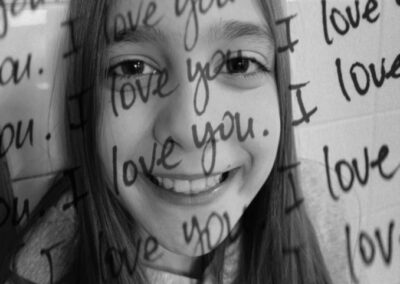 you. I love you. I love
ou. I love you. I love
you. I love you. I love
you. I love you. I love
I love you. I love